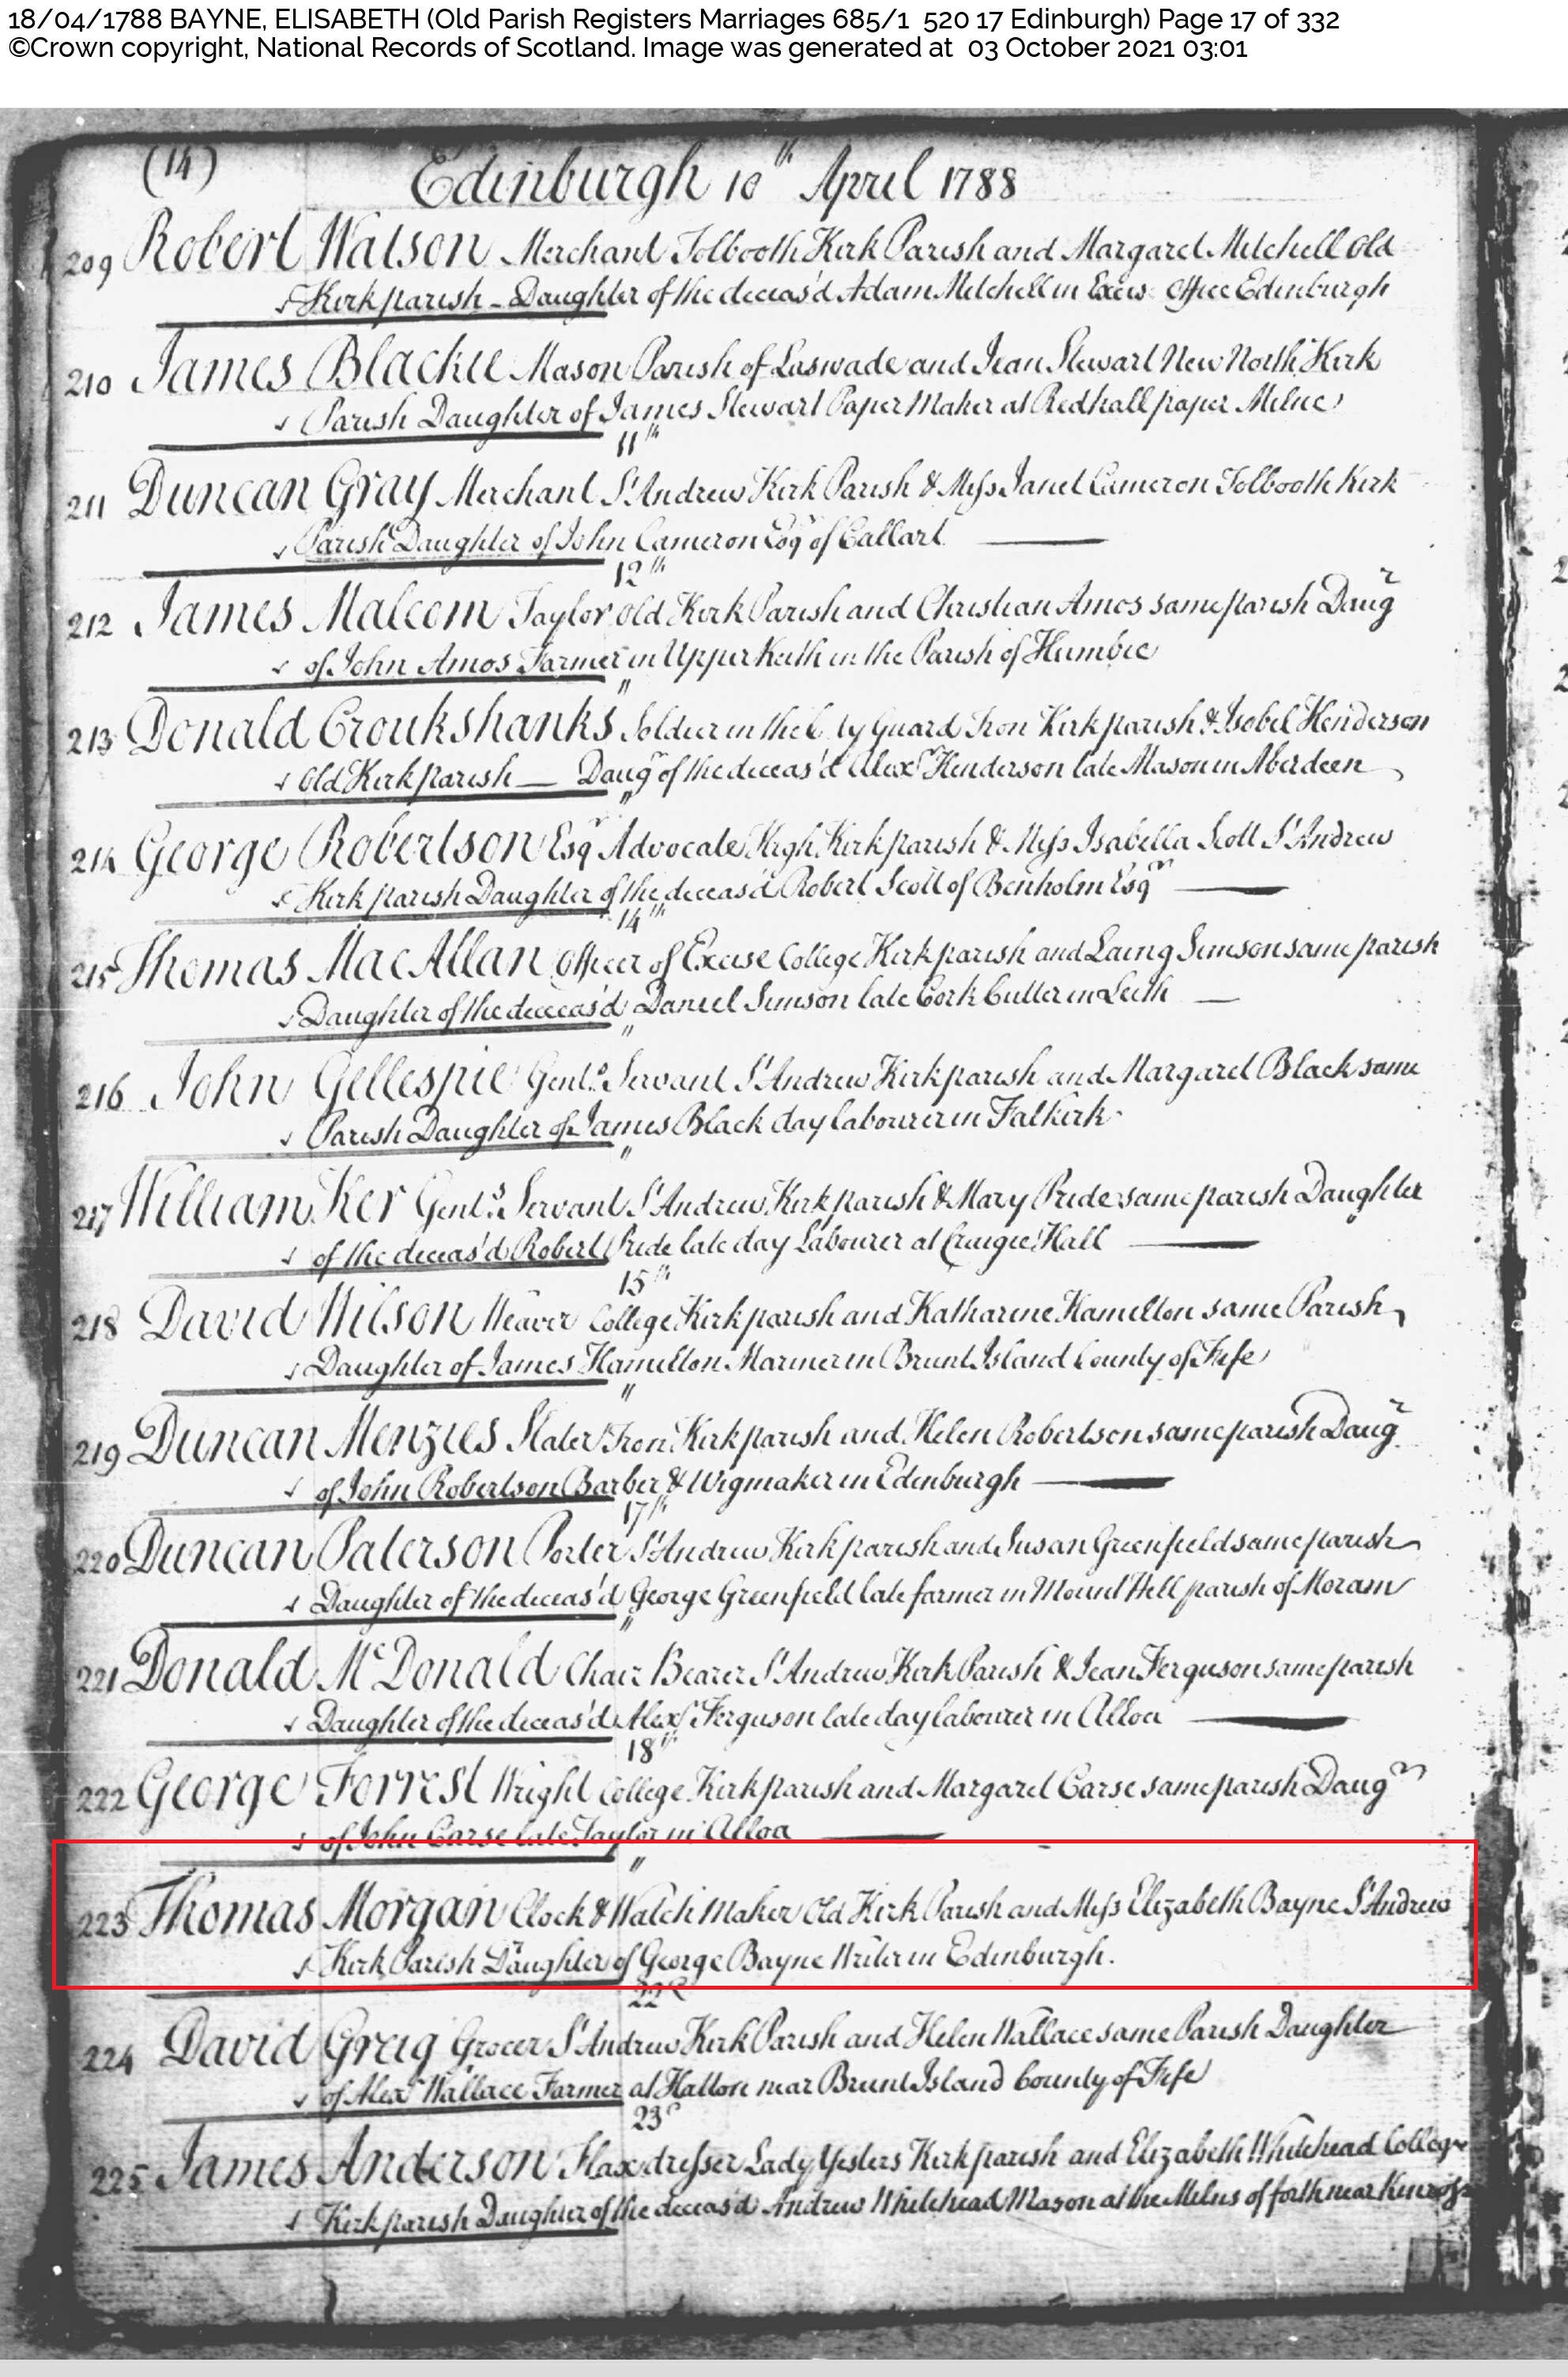 18/04/1788 BAYNE, ELISABETH (Old Parish Registers Marriages 685/1 520 17 Edinburgh) Page 17 of 332
©Crown copyright, National Records of Scotland. Image was generated at 03 October 2021 03:01
(14)
Edinburgh 10th April 1788
209 Robert Watson Merchant Tolbooth Kirk Parish and Margaret Mitchell Old
Kirk parish - Daughter of the deceas'd Adam Mitchell in Office Edinburgh
210 James Blackie Mason Parish of Laswade and Jean Stewart New North Kirk
Parish Daughter of James Stewart Paper Maker at Redhall paper Milne
11th
211 Duncan Gray Merchant St Andrew Kirk Parish & Miss Janet Cameron Tolbooth Kirk
Parish Daughter of John Cameron Esqr of Callart
12th
212 James Malcom Taylor Old Kirk Parish and Christian Amos same parish Daugr
of John Amos Farmer in Upper Keith in the Parish of Humbie
"
213 Donald Croukshanks Soldier in the City Guard Tron Kirk parish & Isobel Henderson
Old Kirk parish — Daugr of the deceas'd Alexr Henderson late Mason in Aberdeen
"
214 George Robertson Esqr Advocate High Kirk parish & Miss Isabella Scott St Andrew
Kirk parish Daughter of the deceas'd Robert Scott of Benholm Esqr
14th
215 Thomas MacAllan Officer of Excise College Kirk parish and Laing Simson same parish
Daughter of the deceas'd Daniel Simson late Cork Cutter in Leith
"
216 John Gellespie Gentls Servant St Andrew Kirk parish and Margaret Black same
Parish Daughter of James Black day labourer in Falkirk
"
217 William Ker Gentls Servant St Andrew Kirk parish & Mary Pride same parish Daughter
of the deceas'd Robert Pride late day Labourer at Craigie Hall
15th
218 David Wilson Weaver College Kirk parish and Katharine Hamilton same Parish
Daughter of James Hamilton Mariner in Brunt Island County of Fife
"
219 Duncan Menzies Slater Tron Kirk parish and Helen Robertson same parish Daugr
of John Robertson Barber & Wigmaker in Edinburgh
17th
220 Duncan Paterson Porter St Andrew Kirk parish and Susan Greenfield same parish
Daughter of the deceas'd George Greenfield late farmer in Mount Hell parish of Moram
"
221 Donald McDonald Chair Bearer St Andrew Kirk Parish & Jean Ferguson same parish
Daughter of the deceas'd Alexr Ferguson late day labourer in Alloa
18th
222 George Forrest Wright College Kirk parish and Margaret Carse same parish Daugr
of John Carse late Taylor in Alloa
"
223 Thomas Morgan Clock & Watch Maker Old Kirk Parish and Miss Elizabeth Bayne St Andrews
Kirk Parish Daughter of George Bayne Writer in Edinburgh.
22d
224 David Greig Grocer St Andrew Kirk Parish and Helen Wallace same Parish Daughter
of Alexr Wallace Farmer at Halton near Brunt Island County of Fife
23d
225 James Anderson Flaxdresser Lady Yesters Kirk parish and Elizabeth Whitehead College
Kirk parish Daughter of the deceas'd Andrew Whitehead Mason at the Milns of forth near Kinross